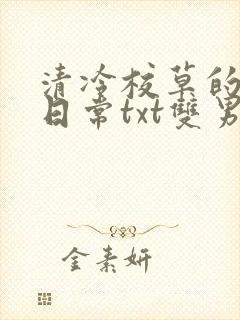 清冷校草的
日常txt雙男
金素妍